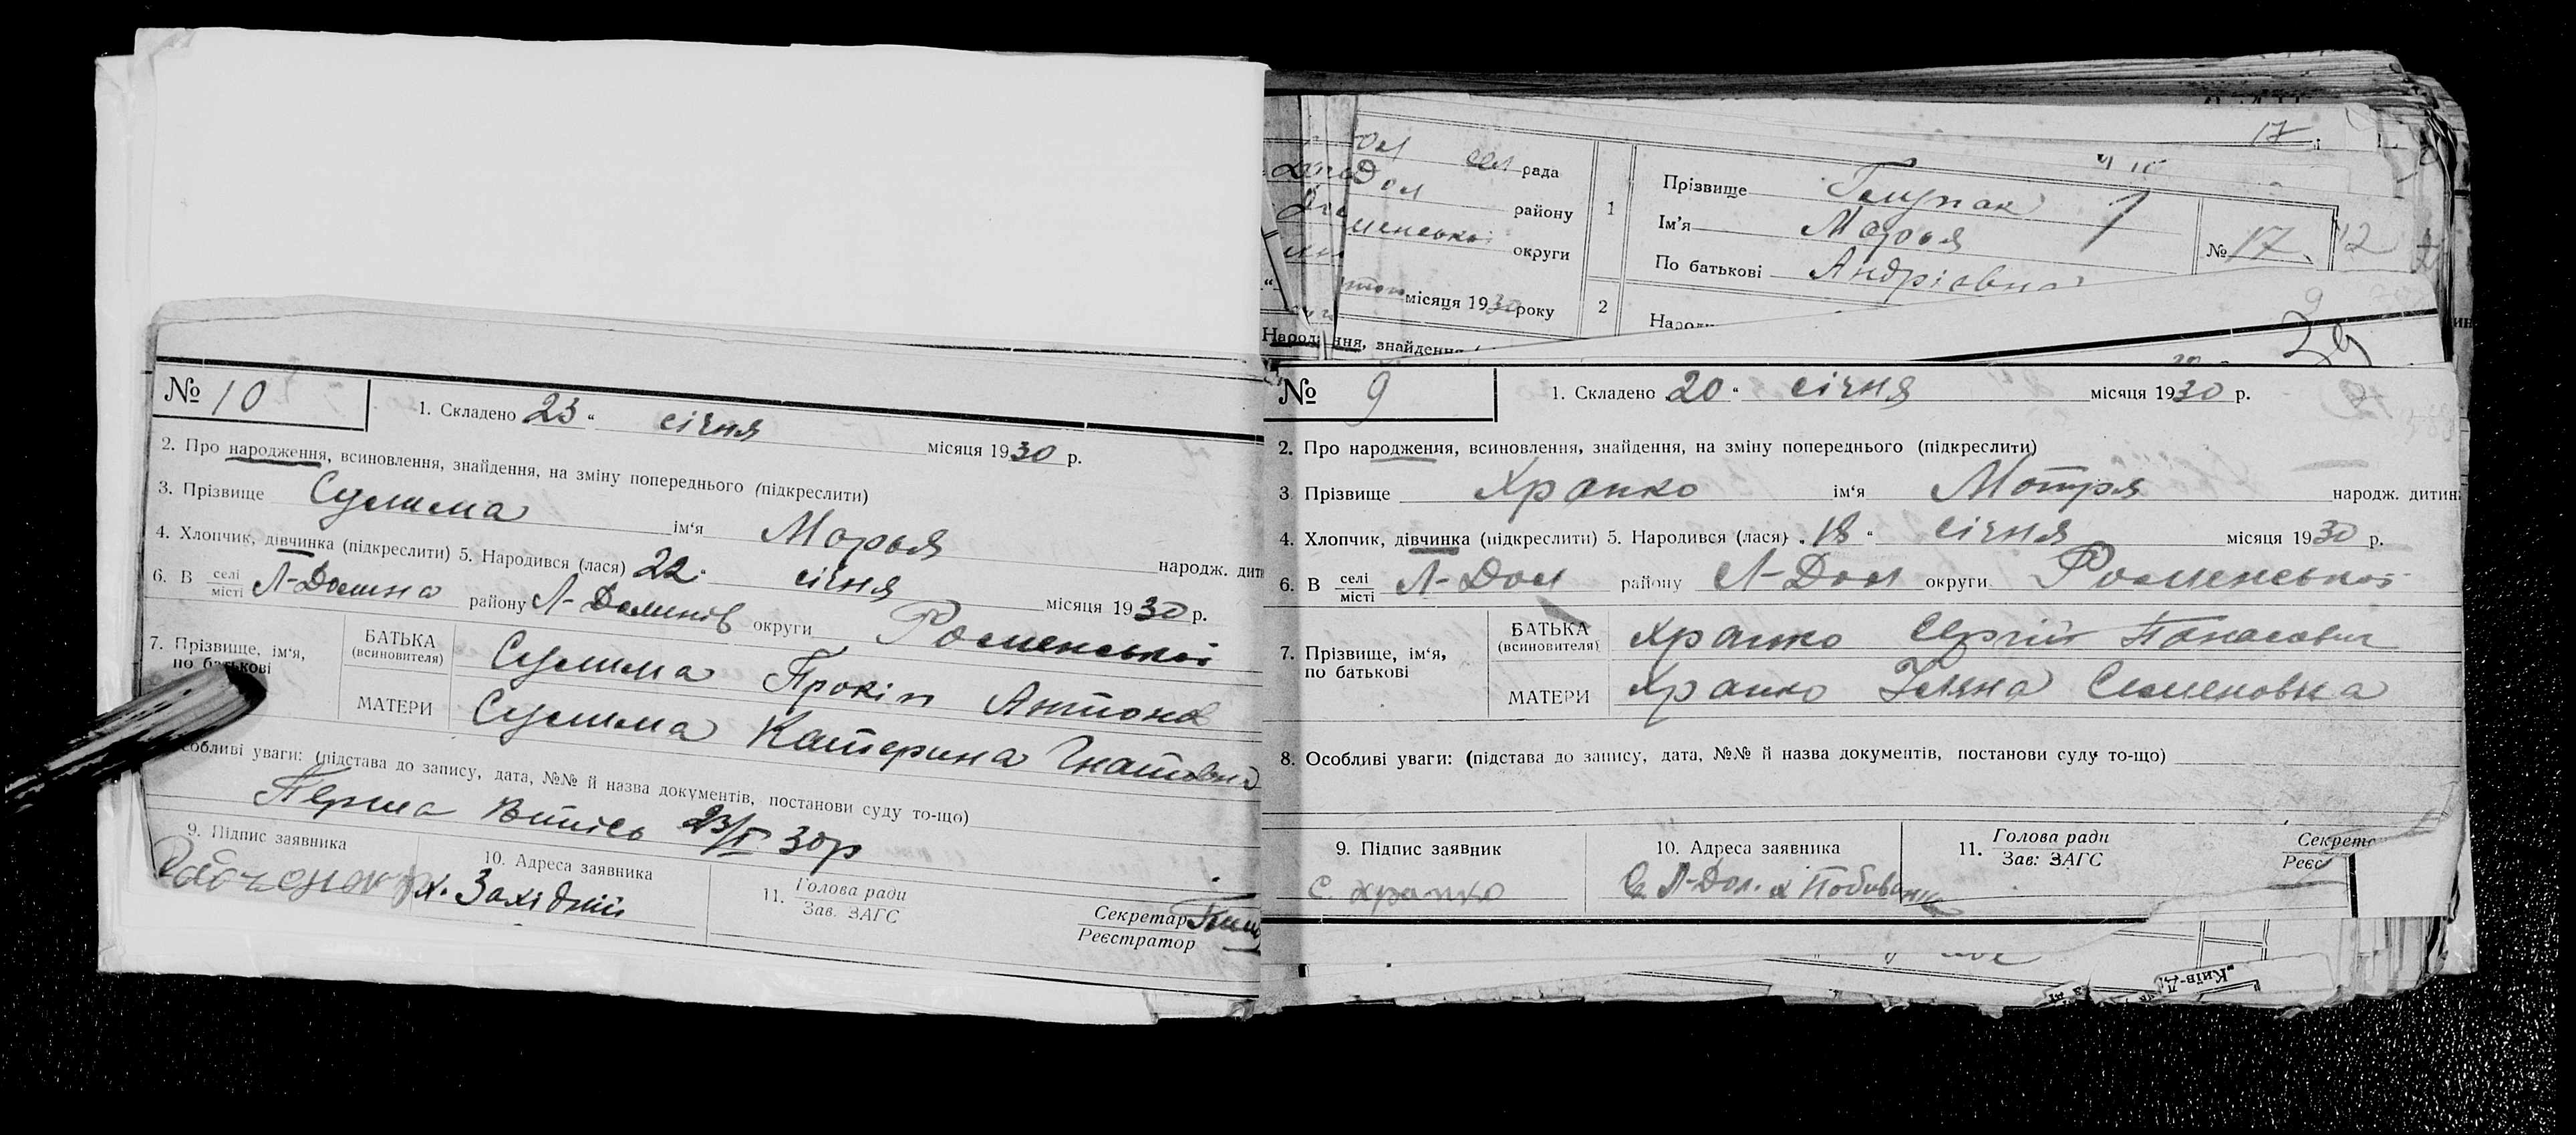 № 10
1. Складено 23 " січня місяця 1930 р.
2. Про народження, всиновлення, знайдення, на зміну попереднього (підкреслити)
3. Прізвище Сулима ім'я Марья народж. дит
4. Хлопчик, дівчинка (підкреслити) 5. Народився (лася) 22 " січня місяця 1930 р.
6. В селі місті Л-Долина району Л-Долинів округи Роменської
7. Прізвище, ім'я, по батькові
БАТЬКА (всиновителя) Сулима Прокіп Антонов
МАТЕРИ Сулима Катерина Гнатовна
собливі уваги: (підстава до запису, дата, №№ й назва документів, постанови суду то-що)
Перша витпсь 23/I 30р
9. Підпис заявника
10. Адреса заявника х. Західній
11. Голова ради Зав. ЗАГС
Секретар Реєстратор
рада
району
округи
місяця 1930 року
1
Прізвище
Ім'я Марья
По батькові Андріевна
№ 17
12
17
2
Народ
знайденн
39
№ 9
1. Складено 20 " січня місяця 1930 р.
2. Про народження, всиновлення, знайдення, на зміну попереднього (підкреслити)
3 Прізвище Храпко ім'я Мотря народж. дитин
4. Хлопчик, дівчинка (підкреслити) 5. Народився (лася) 18 " січня місяця 1930 р.
6. В селі місті Л-Дол району Л-Дол округи Роменської
7. Прізвище, ім'я, по батькові
БАТЬКА (всиновителя) Храпко Сергій Панасович
МАТЕРИ Храпко Уляна Семеновна
8. Особливі уваги: (підстава до запису, дата, №№ й назва документів, постанови суду то-що)
9. Підпис заявник С. Храпко
10. Адреса заявника С Л-Дол. х Побиванка
11. Голова ради Зав: ЗАГС
Секрета
Реєс
„Київ-Д